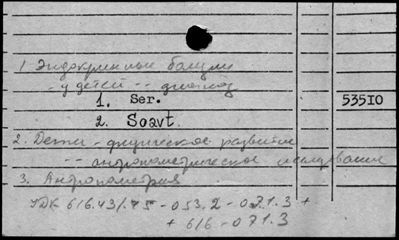 1 Эндокринные болезни
- у детей -- диагноз
1. Ser. 53510
2. Soavt.
2. Дети - физическое развитие
-- антропометрическое исследование
3. Антропометрия
УДК 616.43/.45 - 053.2 - 071.3 +
+ 616 - 071.3